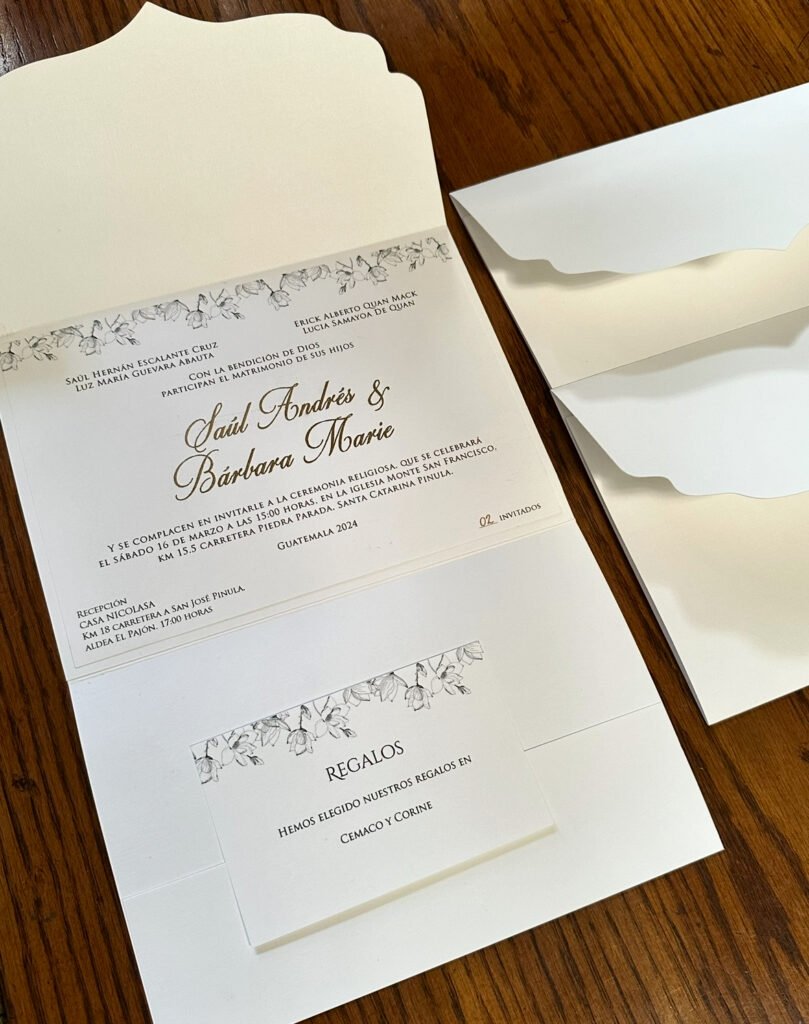 Saúl Hernán Escalante Cruz
Luz María Guevara Abauta
Erick Alberto Quan Mack
Lucia Samayoa De Quan
Con la bendición de Dios
participan el matrimonio de sus hijos
Saúl Andrés &
Bárbara Marie
Y se complacen en invitarle a la ceremonia religiosa, que se celebrará
el sábado 16 de marzo a las 15:00 horas, en la iglesia Monte San Francisco,
Km 15.5 carretera Piedra Parada, Santa Catarina Pinula.
Guatemala 2024
02 invitados
Recepción
Casa Nicolasa
Km 18 carretera a San José Pinula,
aldea El Pajón. 17:00 horas
Regalos
Hemos elegido nuestros regalos en
Cemaco y Corine